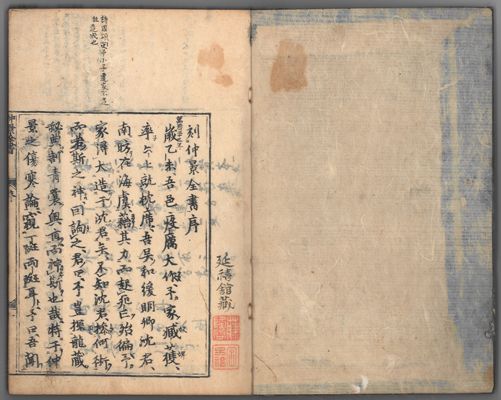 詩周頌閔予小子遭家不造
註造成也
刻仲景全書序
歲乙未吾邑疫厲大作予家臧獲
率六七就枕席吾吳和緩明卿沈君
南昉在海虞藉其力而起死亡殆徧予
家得大造于沈君矣不知沈君操何術
而若斯之神因詢之君曰予豈探龍藏
秘典剖青囊奧旨而神斯也哉特于仲
景之傷寒論窺一斑兩斑耳予曰吾聞
館藏